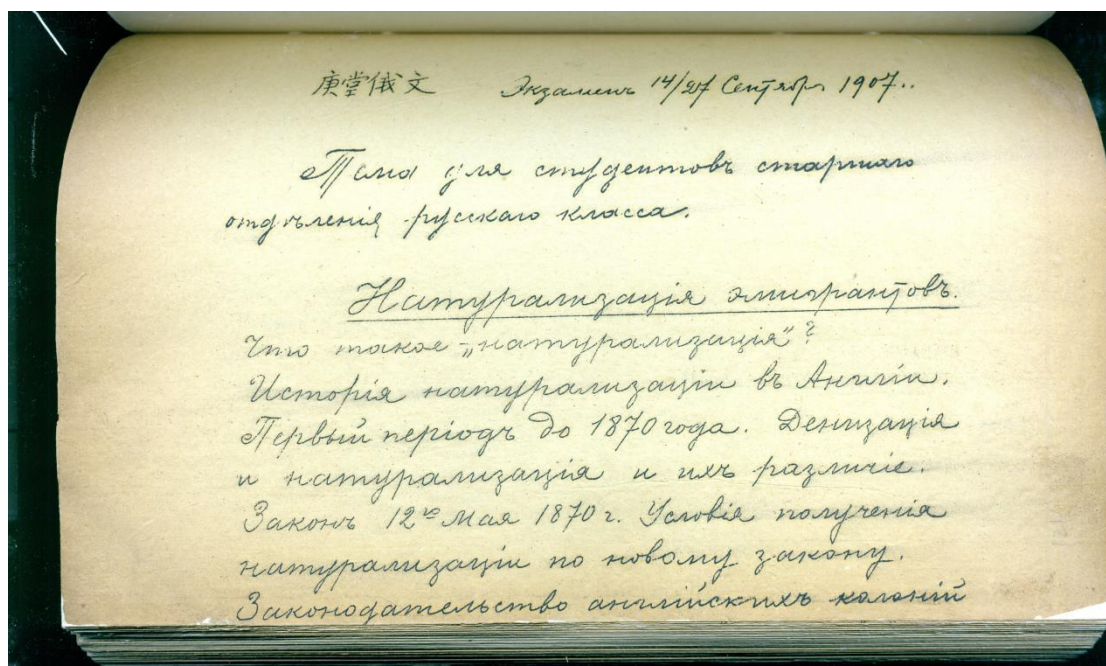 庚堂俄文 Экзаменъ 14/27 Сентября 1907..
Тема для студентовъ старшаго
отдѣленія русскаго класса.
Натурализація эмигрантовъ.
Что такое „натурализація“?
Исторія натурализаціи въ Англіи.
Первый періодъ до 1870 года. Денизація
и натурализація и ихъ различіе.
Законъ 12го Мая 1870 г. Условія полученія
натурализаціи по новому закону.
Законодательство англійскихъ колоній